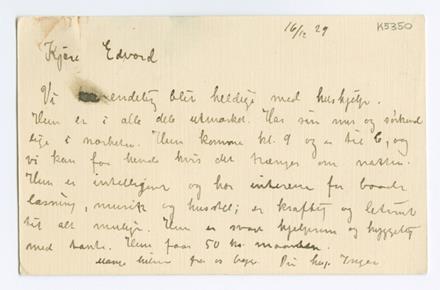 16/12 29
K5350
Kjere Edvard
Vi endelig blit heldige med hushjelp.
Hun er i alle dele utmerket. Har sin mor og søskend
lige i nærheten. Hun kommer kl. 9 og er til 6, og
vi kan faa hende hvis det trænges om natten.
Hun er intelligent og har interesse for baade
læsning, musik og husstel; er kraftig og
til alt mulig. Hun er svært hjelpsom og hyggelig
med tante. Hun faar 50 kr. maaneden.
Mange hilsner fra os begge. Din Inger